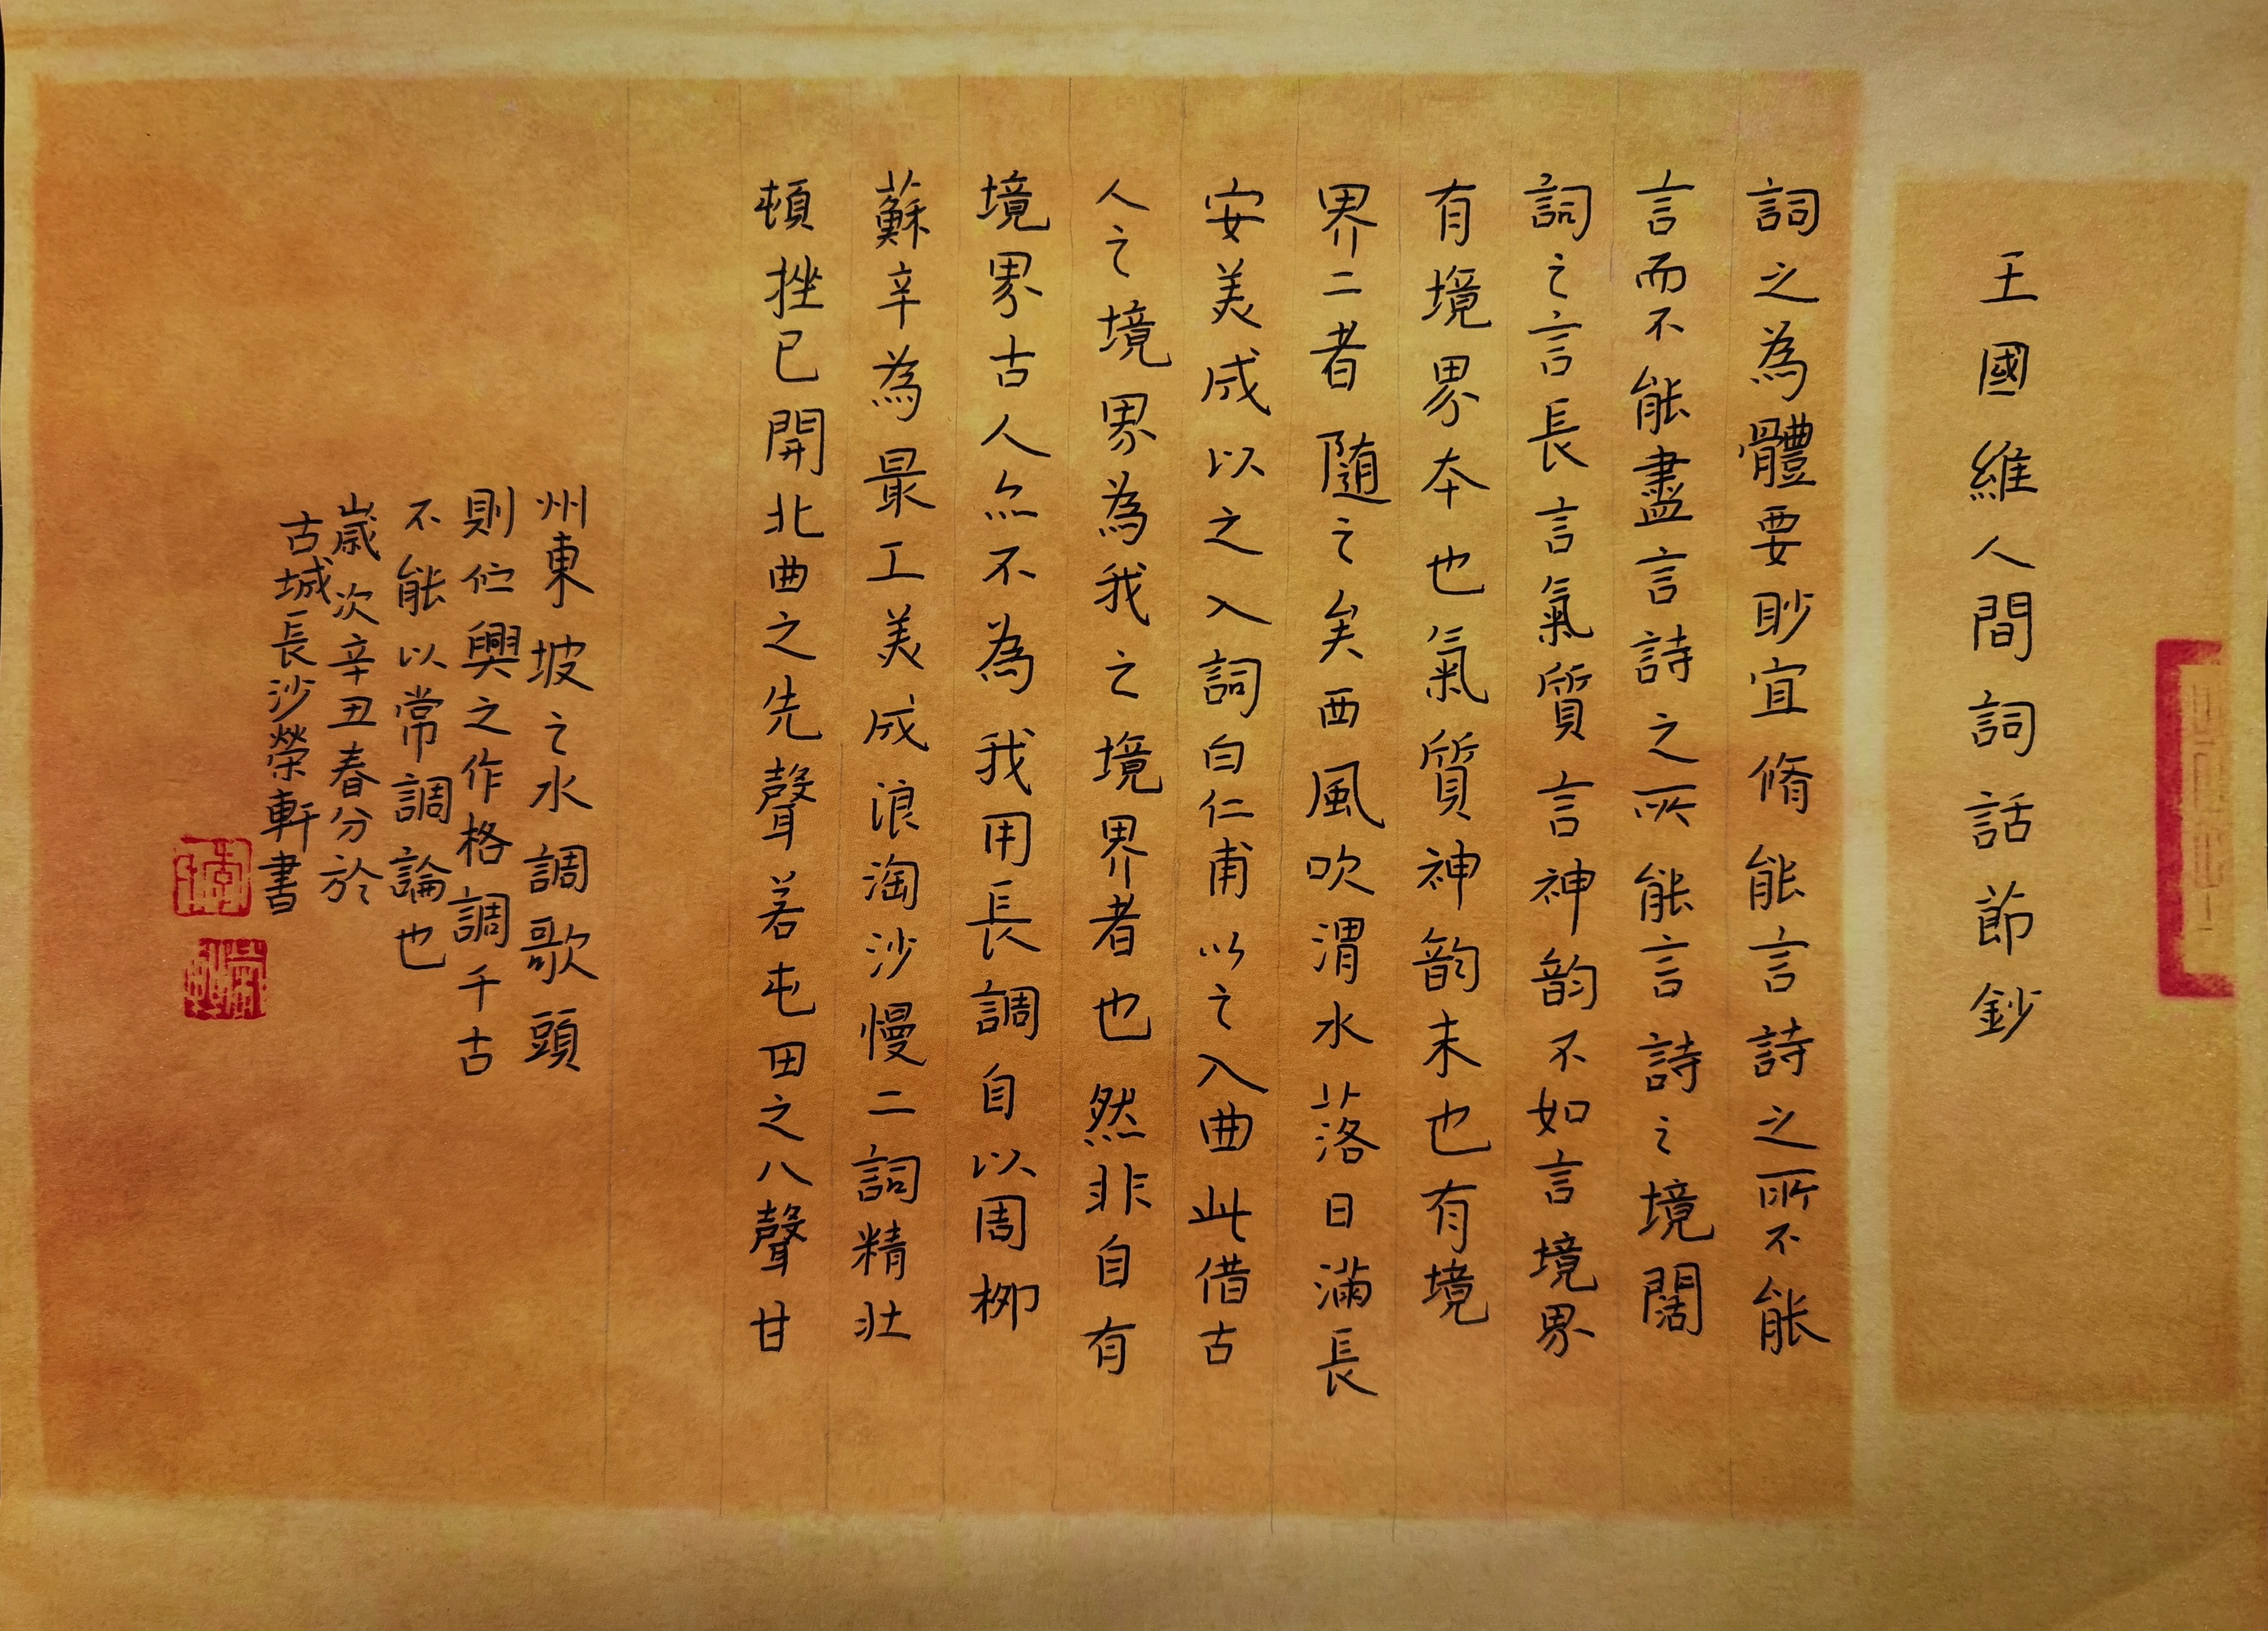 王國維人間詞話節鈔
詞之為體要眇宜脩能言詩之所不能
言而不能盡言詩之所能言詩之境闊
詞之言長言氣質言神韵不如言境界
有境界本也氣質神韵末也有境
界二者随之矣西風吹渭水落日滿長
安美成以之入詞白仁甫以之入曲此借古
人之境界為我之境界者也然非自有
境界古人亦不為我用長調自以周柳
蘇辛為最工美成浪淘沙慢二詞精壯
頓挫已開北曲之先聲若屯田之八聲甘
州東坡之水調歌頭
則伫興之作格調千古
不能以常調論也
歲次辛丑春分於
古城長沙榮軒書